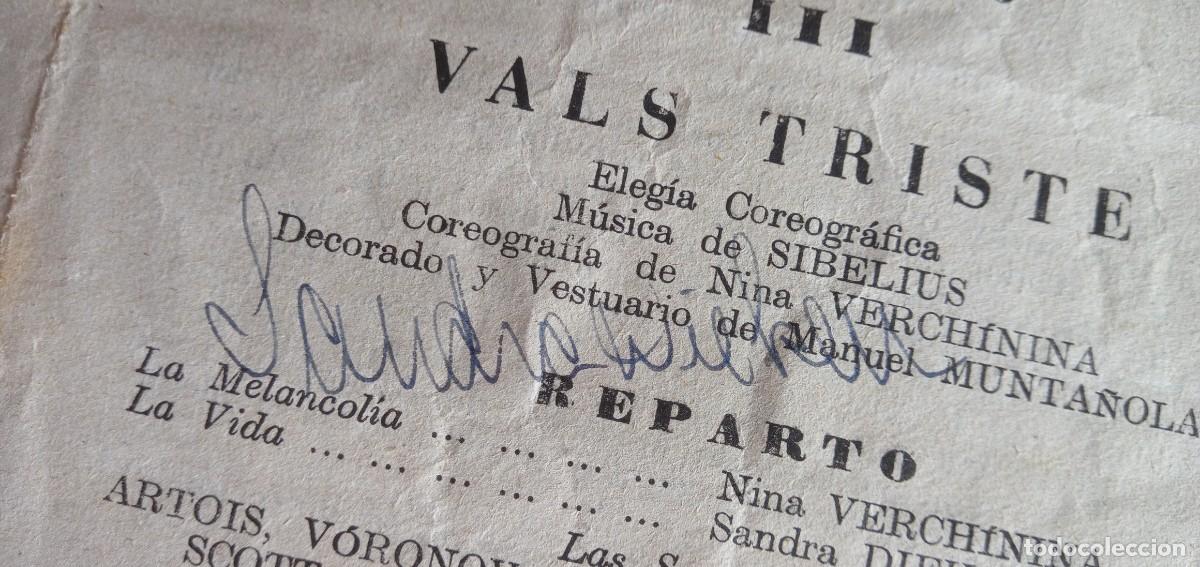 III
VALS TRISTE
Elegía Coreográfica
Música de SIBELIUS
Coreografía de Nina VERCHÍNINA
Decorado y Vestuario de Manuel MUNTAÑOLA
Sandra Dieken
REPARTO
La Melancolía ... ... ... ... Nina VERCHÍNINA
La Vida ... ... ... ... ... ... Sandra
Las
ARTOIS,
SCOTT
todocoleccion